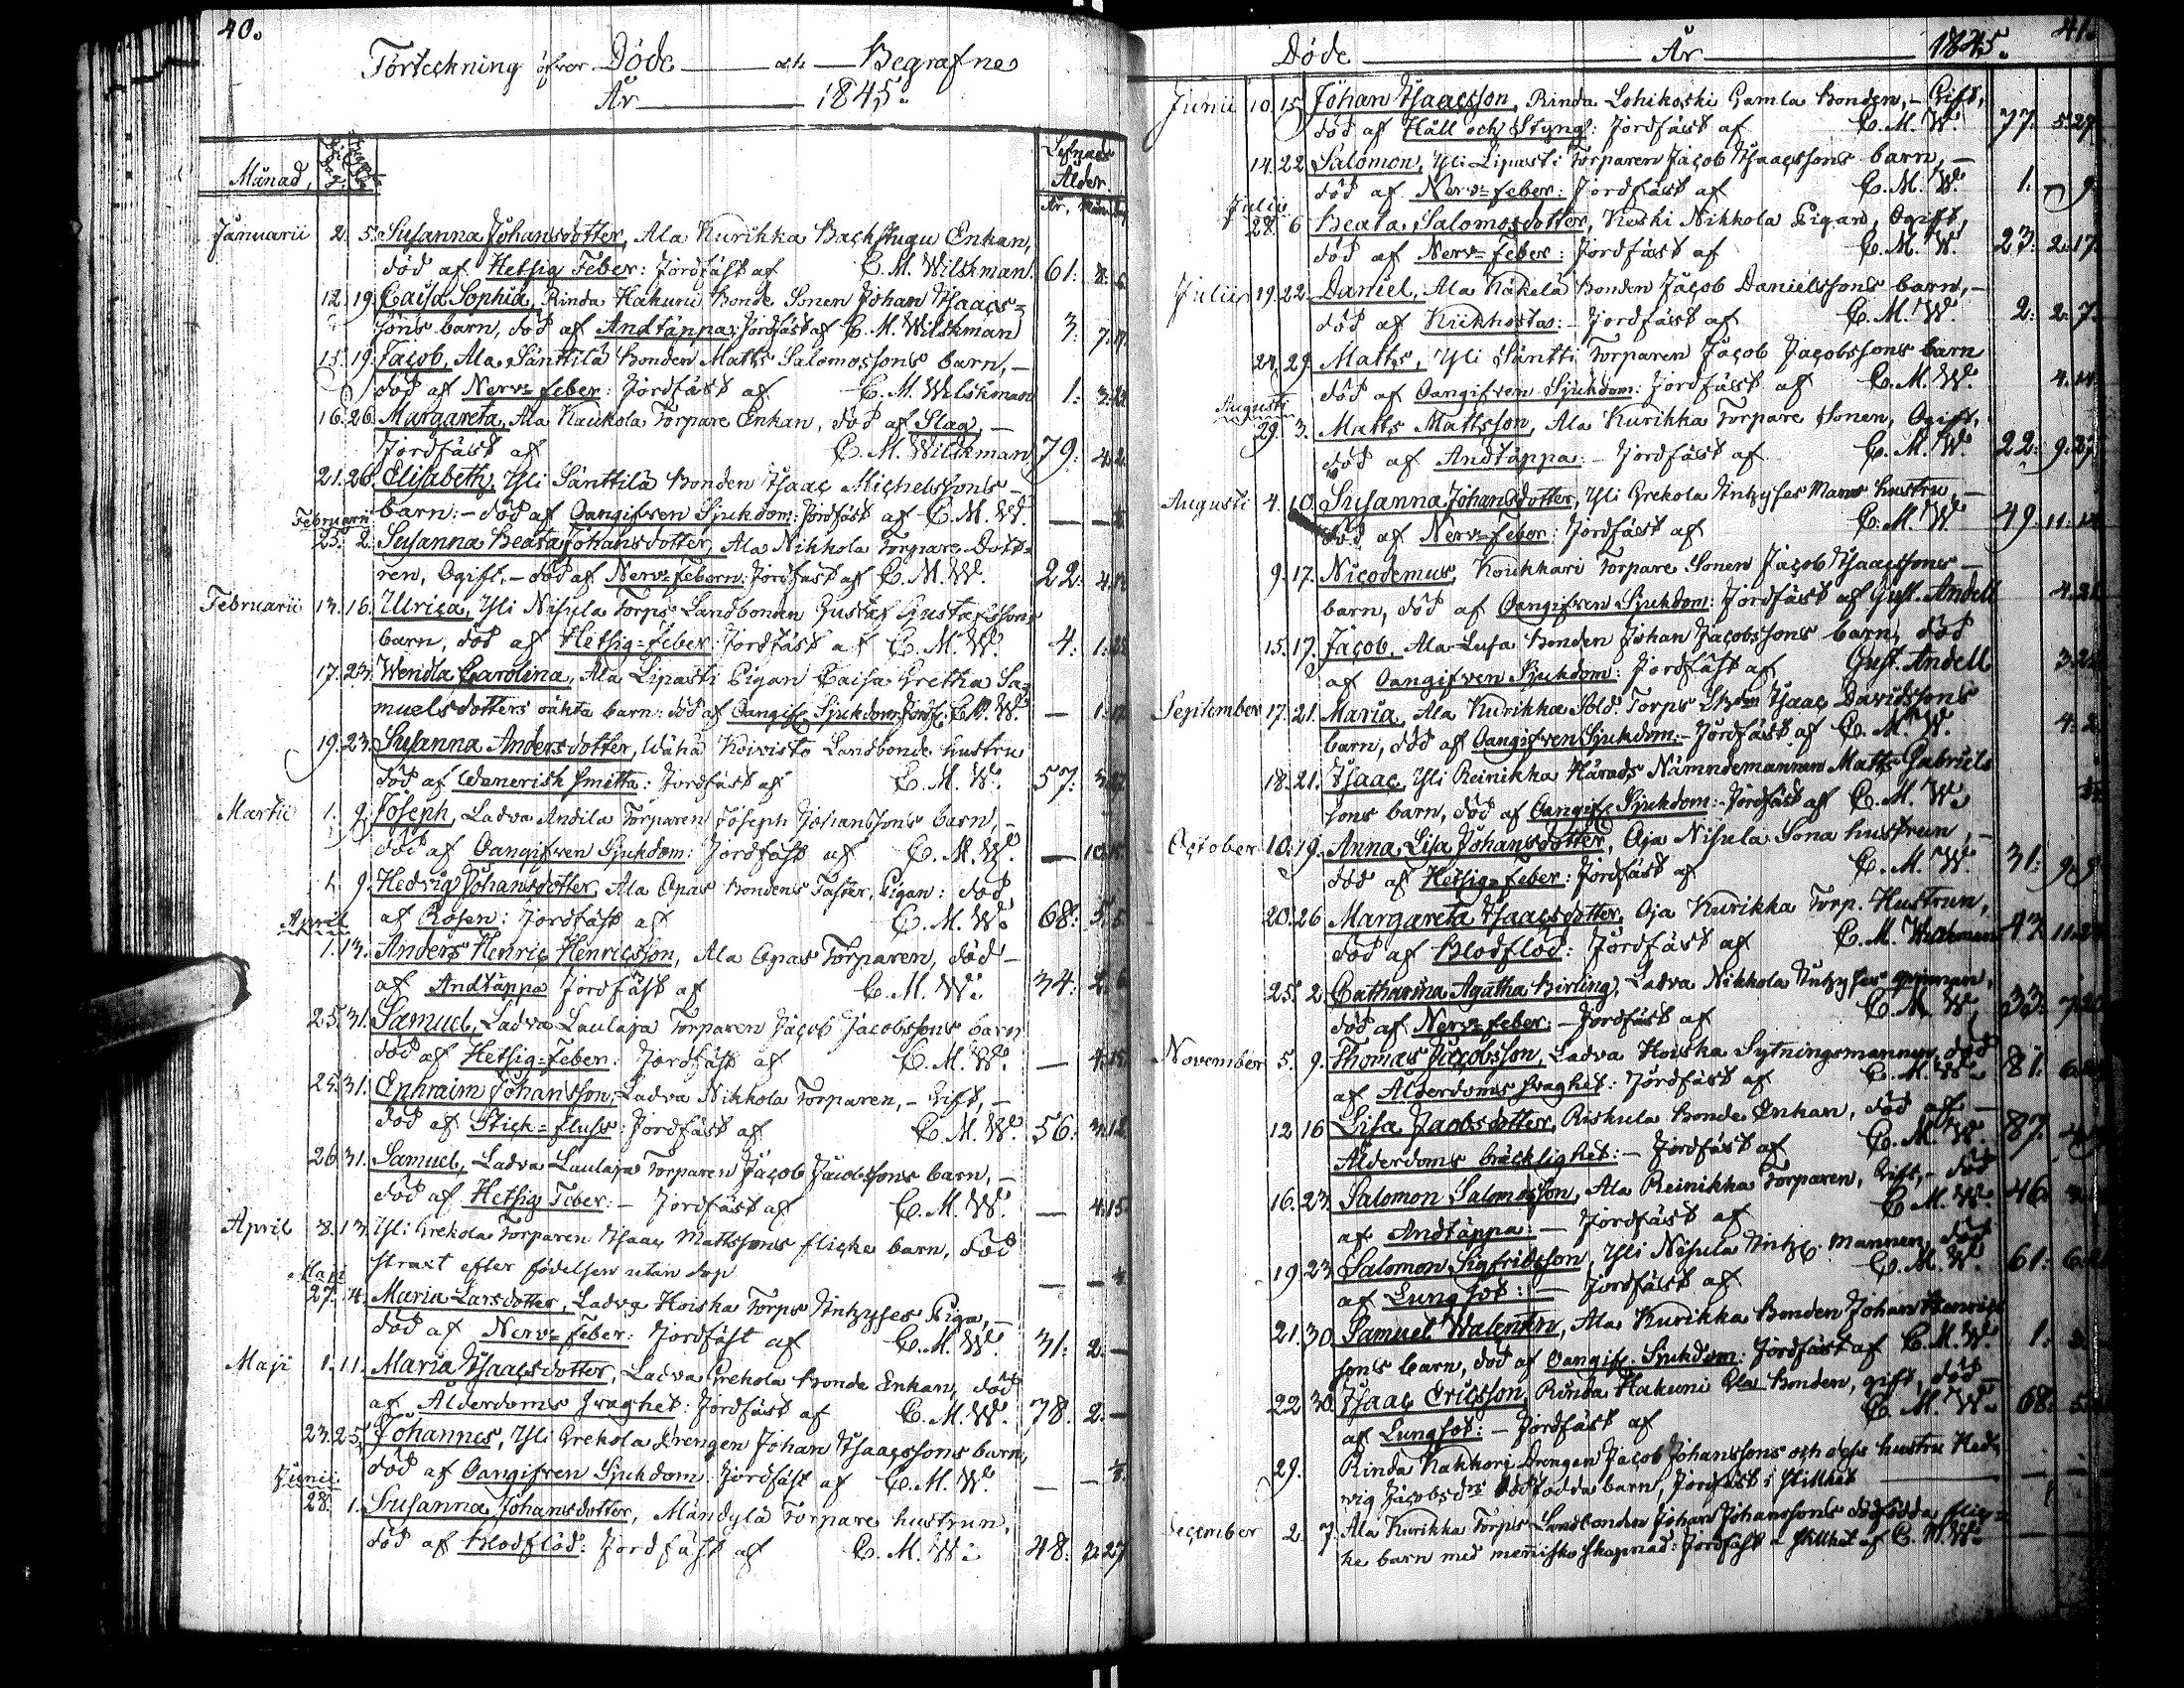 40.
Förteckning öfver Döde och Begrafne
År 1845.
Månad,
Lefnads
Ålder.
År, Mån. Dag
Januarii 2. 5. Susanna Johansdotter, Ala Kurikka Backstugu Enkan,
död af Hetsig Feber: Jordfäst af C. M. Wilskman. 61:
12. 19. Caisa Sophia, Rinda Hakuni Bonde Sonen Johan Isaacs-
sons barn, död af Andtäppa: Jordfäst af C. M. Wilskman 3: 7.
15. 19. Jacob, Ala Sänttilä Bonden Matts Salomossons barn, –
död af Nerv-feber: Jordfäst af C. M. Wilskman 1: 3.
16. 26. Margareta, Ala Kaukola Torpare Enkan, död af Slag, –
Jordfäst af C. M. Wilskman 79: 4.2
21. 26. Elisabeth, Yli Sänttilä Bonden Isaac Michelssons –
barn: – död af Oangifven Sjukdom: Jordfäst af C. M. W. —
Februarii
25. 2. Susanna Beata Johansdotter, Ala Nikkola Torpare Dott-
ren, Ogift, – död af Nerv-Febern: Jordfäst af C. M. W. 22: 4.
Februarii 13. 16. Ulrica, Yli Nisula Torps Landbonden Gustaf Gustafssons
barn, död af Hetsig-feber: Jordfäst af C. M. W. 4: 1.
17. 23. Wendla Carolina, Ala Lipasti Pigan Caisa Gretha Sa-
muelsdotters oäkta barn: död af Oangif. Sjukdom: Jordf: C. M. W. — 1.
19. 23. Susanna Andersdotter, Wähä Koivisto Landbonde hustru
död af Wenerisk smitta: Jordfäst af C. M. W. 57: 3.
Martii 1. 9. Joseph, Ladva Andila Torparen Joseph Johanssons barn, –
död af Oangifven Sjukdom: Jordfäst af C. M. W. — 10.
1. 9. Hedvig Johansdotter, Ala Opas Bondens Faster, Pigan: död
af Rosen: Jordfäst af C. M. W. 68: 5.
April
1. 13. Anders Henric Henricsson, Ala Opas Torparen, död –
af Andtäppa Jordfäst af C. M. W. 34: 6
25. 31. Samuel, Ladva Laulaja Torparen Jacob Jacobssons barn
död af Hetsig-Feber: Jordfäst af C. M. W. — 4.15
25. 31. Ephraim Johansson, Ladva Nikkola Torparen, – Gift, –
död af Stick-fluss: Jordfäst af C. M. W. 56: 3.12
26. 31. Samuel, Ladva Laulaja Torparen Jacob Jacobssons barn, –
död af Hetsig Feber: – Jordfäst af C. M. W. — 4.15
April 8. 13. Yli Grekola Torparen Isaac Mattssons flicke barn, död
straxt efter födelsen utan dop —
Maji
27. 4. Maria Larsdotter, Ladva Hoiska Torps Inhyses Piga, –
död af Nerv-Feber: Jordfäst af C. M. W. 31: 2. —
Maji 1. 11. Maria Isaacsdotter, Ladva Grekola Bonde Enkan, död
af Ålderdoms svaghet: Jordfäst af C. M. W. 78. 2. —
23. 25. Johannes, Yli Grekola Drengen Johan Isaacssons barn,
död af Oangifven Sjukdom: Jordfäst af C. M. W. — —
Junii
28. 1. Susanna Johansdotter, Mändylä Torpare hustrun,
död af Blodflöd: Jordfäst af C. M. W. 48: 7.27
41.
Döde År 1845.
Junii 10. 15. Johan Isaacsson, Rinda Lohikoski Gamla Bonden, – Gift,
död af Håll och Styng: Jordfäst af C. M. W. 77: 5.27.
14. 22. Salomon, Yli Lipasti Torparen Jacob Isaacssons barn, –
död af Nerv-feber: Jordfäst af C. M. W. 1: — 9.
Julii
28. 6. Beata Salomosdotter, Koski Nikkola Pigan, Ogift,
död af Nerv-feber: Jordfäst af C. M. W. 23: 2.17.
Julii 19. 22. Daniel, Ala Käkelä Bonden Jacob Danielssons barn, –
död af Kikhostan: – Jordfäst af C. M. W. 2: 2.7.
24. 29. Matts, Yli Säntti Torparen Jacob Jacobssons barn
död af Oangifven Sjukdom: Jordfäst af C. M. W. 4.14.
Augusti
29. 3. Matts Mattsson, Ala Kurikka Torpare Sonen, Ogift,
död af Andtäppa: – Jordfäst af C. M. W. 22: 9.27
Augusti 4. 10. Susanna Johansdotter, Yli Grekola Inhyses Mans hustru, –
död af Nerv-feber: Jordfäst af C. M. W. 49. 11.
9. 17. Nicodemus, Koukkari Torpare Sonen Jacob Isaacssons –
barn, död af Oangifven Sjukdom: Jordfäst af Gust. Andell 4.
15. 17. Jacob, Ala Lusa Bonden Johan Jacobssons barn, död
af Oangifven Sjukdom: Jordfäst af Gust. Andell 3.
September 17. 21. Maria, Ala Kurikka Sold. Torps Isaac Davidssons
barn, död af Oangifven Sjukdom: – Jordfäst af C. M. W. 4. 2
18. 21. Isaac, Yli Reinikka Härads Nämndemannen Matts Gabriels
sons barn, död af Oangif. Sjukdom: – Jordfäst af C. M. W.
October 10. 19. Anna Lisa Johansdotter, Oja Nisula Sona hustrun, –
död af Hetsig-feber: Jordfäst af C. M. W. 31: 9.9
20. 26. Margareta Isaacsdotter, Oja Kurikka Torp. Hustrun,
död af Blodflöd: Jordfäst af C. M. Wilskman 43. 11.
25. 2. Catharina Agatha Birling, Ladva Nikkola Inhyses qvinnan,
död af Nerv-feber: – Jordfäst af C. M. W. 33: 7.
November 5. 9. Thomas Jacobsson, Ladva Hoiska Sytningsmannen, död
af Ålderdoms svaghet: Jordfäst af C. M. W. 81. 6.
12. 16. Lisa Jacobsdotter, Riskula Bonde Enkan, död af –
Ålderdoms bräcklighet: – Jordfäst af C. M. W. 87.
16. 23. Salomon Salomosson, Ala Reinikka Torparen, Gift, – död
af Andtäppa: – Jordfäst af C. M. W. 46. 3.
19. 23. Salomon Sigfridsson, Yli Nisula Inhys Mannen, död
af Lungsot: – Jordfäst af C. M. W. 61: 6.
21. 30. Samuel Walentin, Ala Kurikka Bonden Johan Henrics
sons barn, död af Oangif. Sjukdom: Jordfäst af C. M. W. 1:
22. 30. Isaac Ericsson, Rinda Hakuni Gla Bonden, gift, död –
af Lungsot: – Jordfäst af C. M. W. 68: 5.
29. Rinda Kakkori Drengen Jacob Johanssons och dess hustru Hed-
vig Jacobsdrs dödfödda barn, Jordfäst i stillhet
December 2. 7. Ala Kurikka Torps Landbonden Johan Johanssons dödfödda flic-
ke barn med mennisko skapnad: Jordfäst i stillhet af C. M. W.